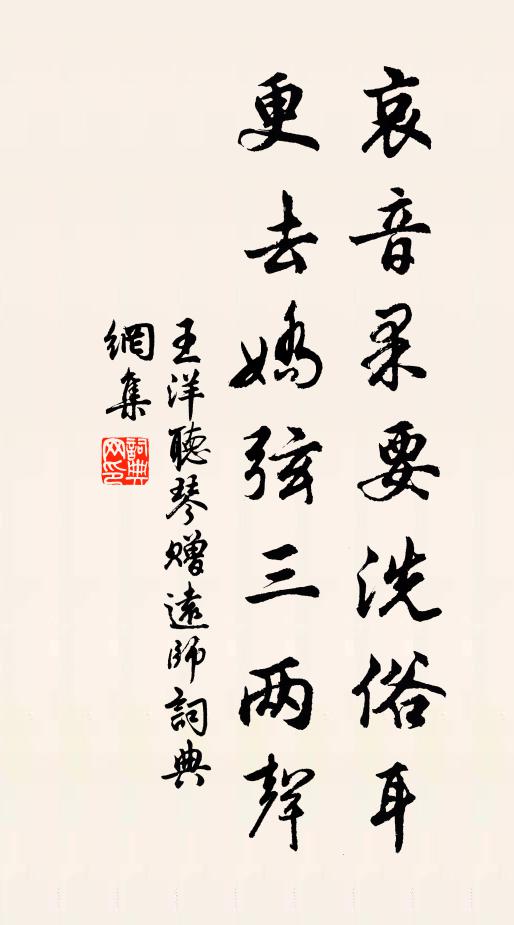 哀音果要洗俗耳
更去嬌弦三两聲
王洋聽琴贈遠師詞典
網集
詞典
网印